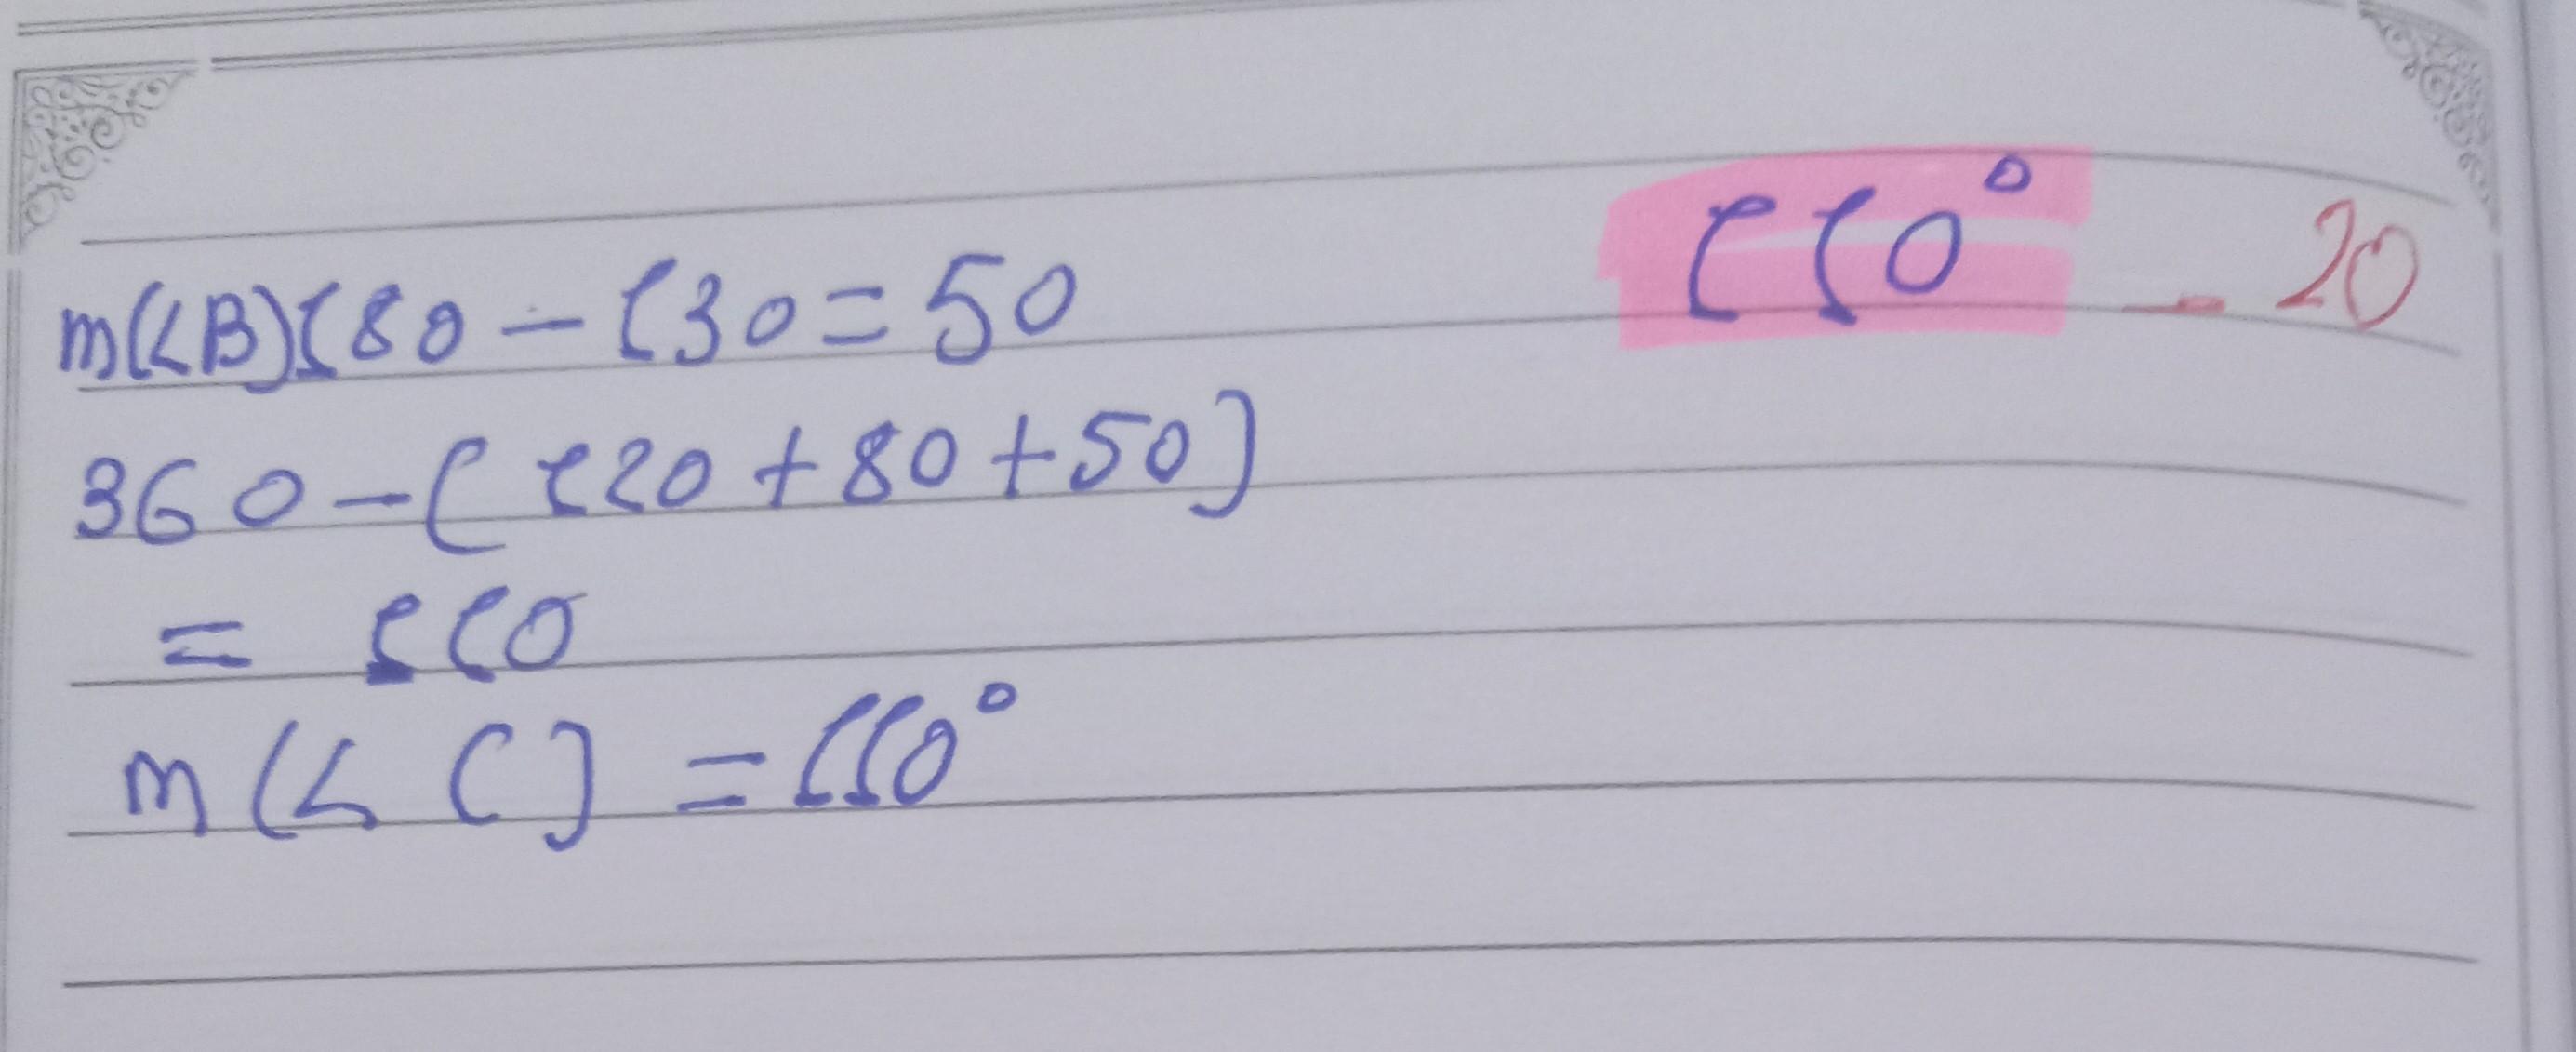 110° - 20
m(<B)180 - 130 = 50
360 - ( 120 + 80 + 50 )
= 110
m(< C) = 110°